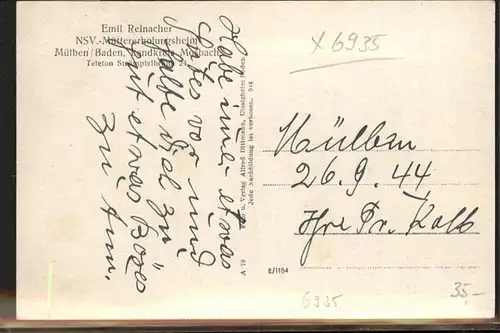 Emil Reinacher
NSV.-Müttererholungsheim
Mülben/Baden, Landkreis Mosbach
Telefon Strümpfelbrunn 24
x 6935
Habe immer etwas
Gutes vor und
halte viel zu
gut etwas Böses
zu tun.
u. Verlag Alfred Dittmann,
Jede Nachbildung ist verboten. 544
A 79
Mülben
26.9.44
Ihre Fr. Kolb
E/1184
6935
35,-